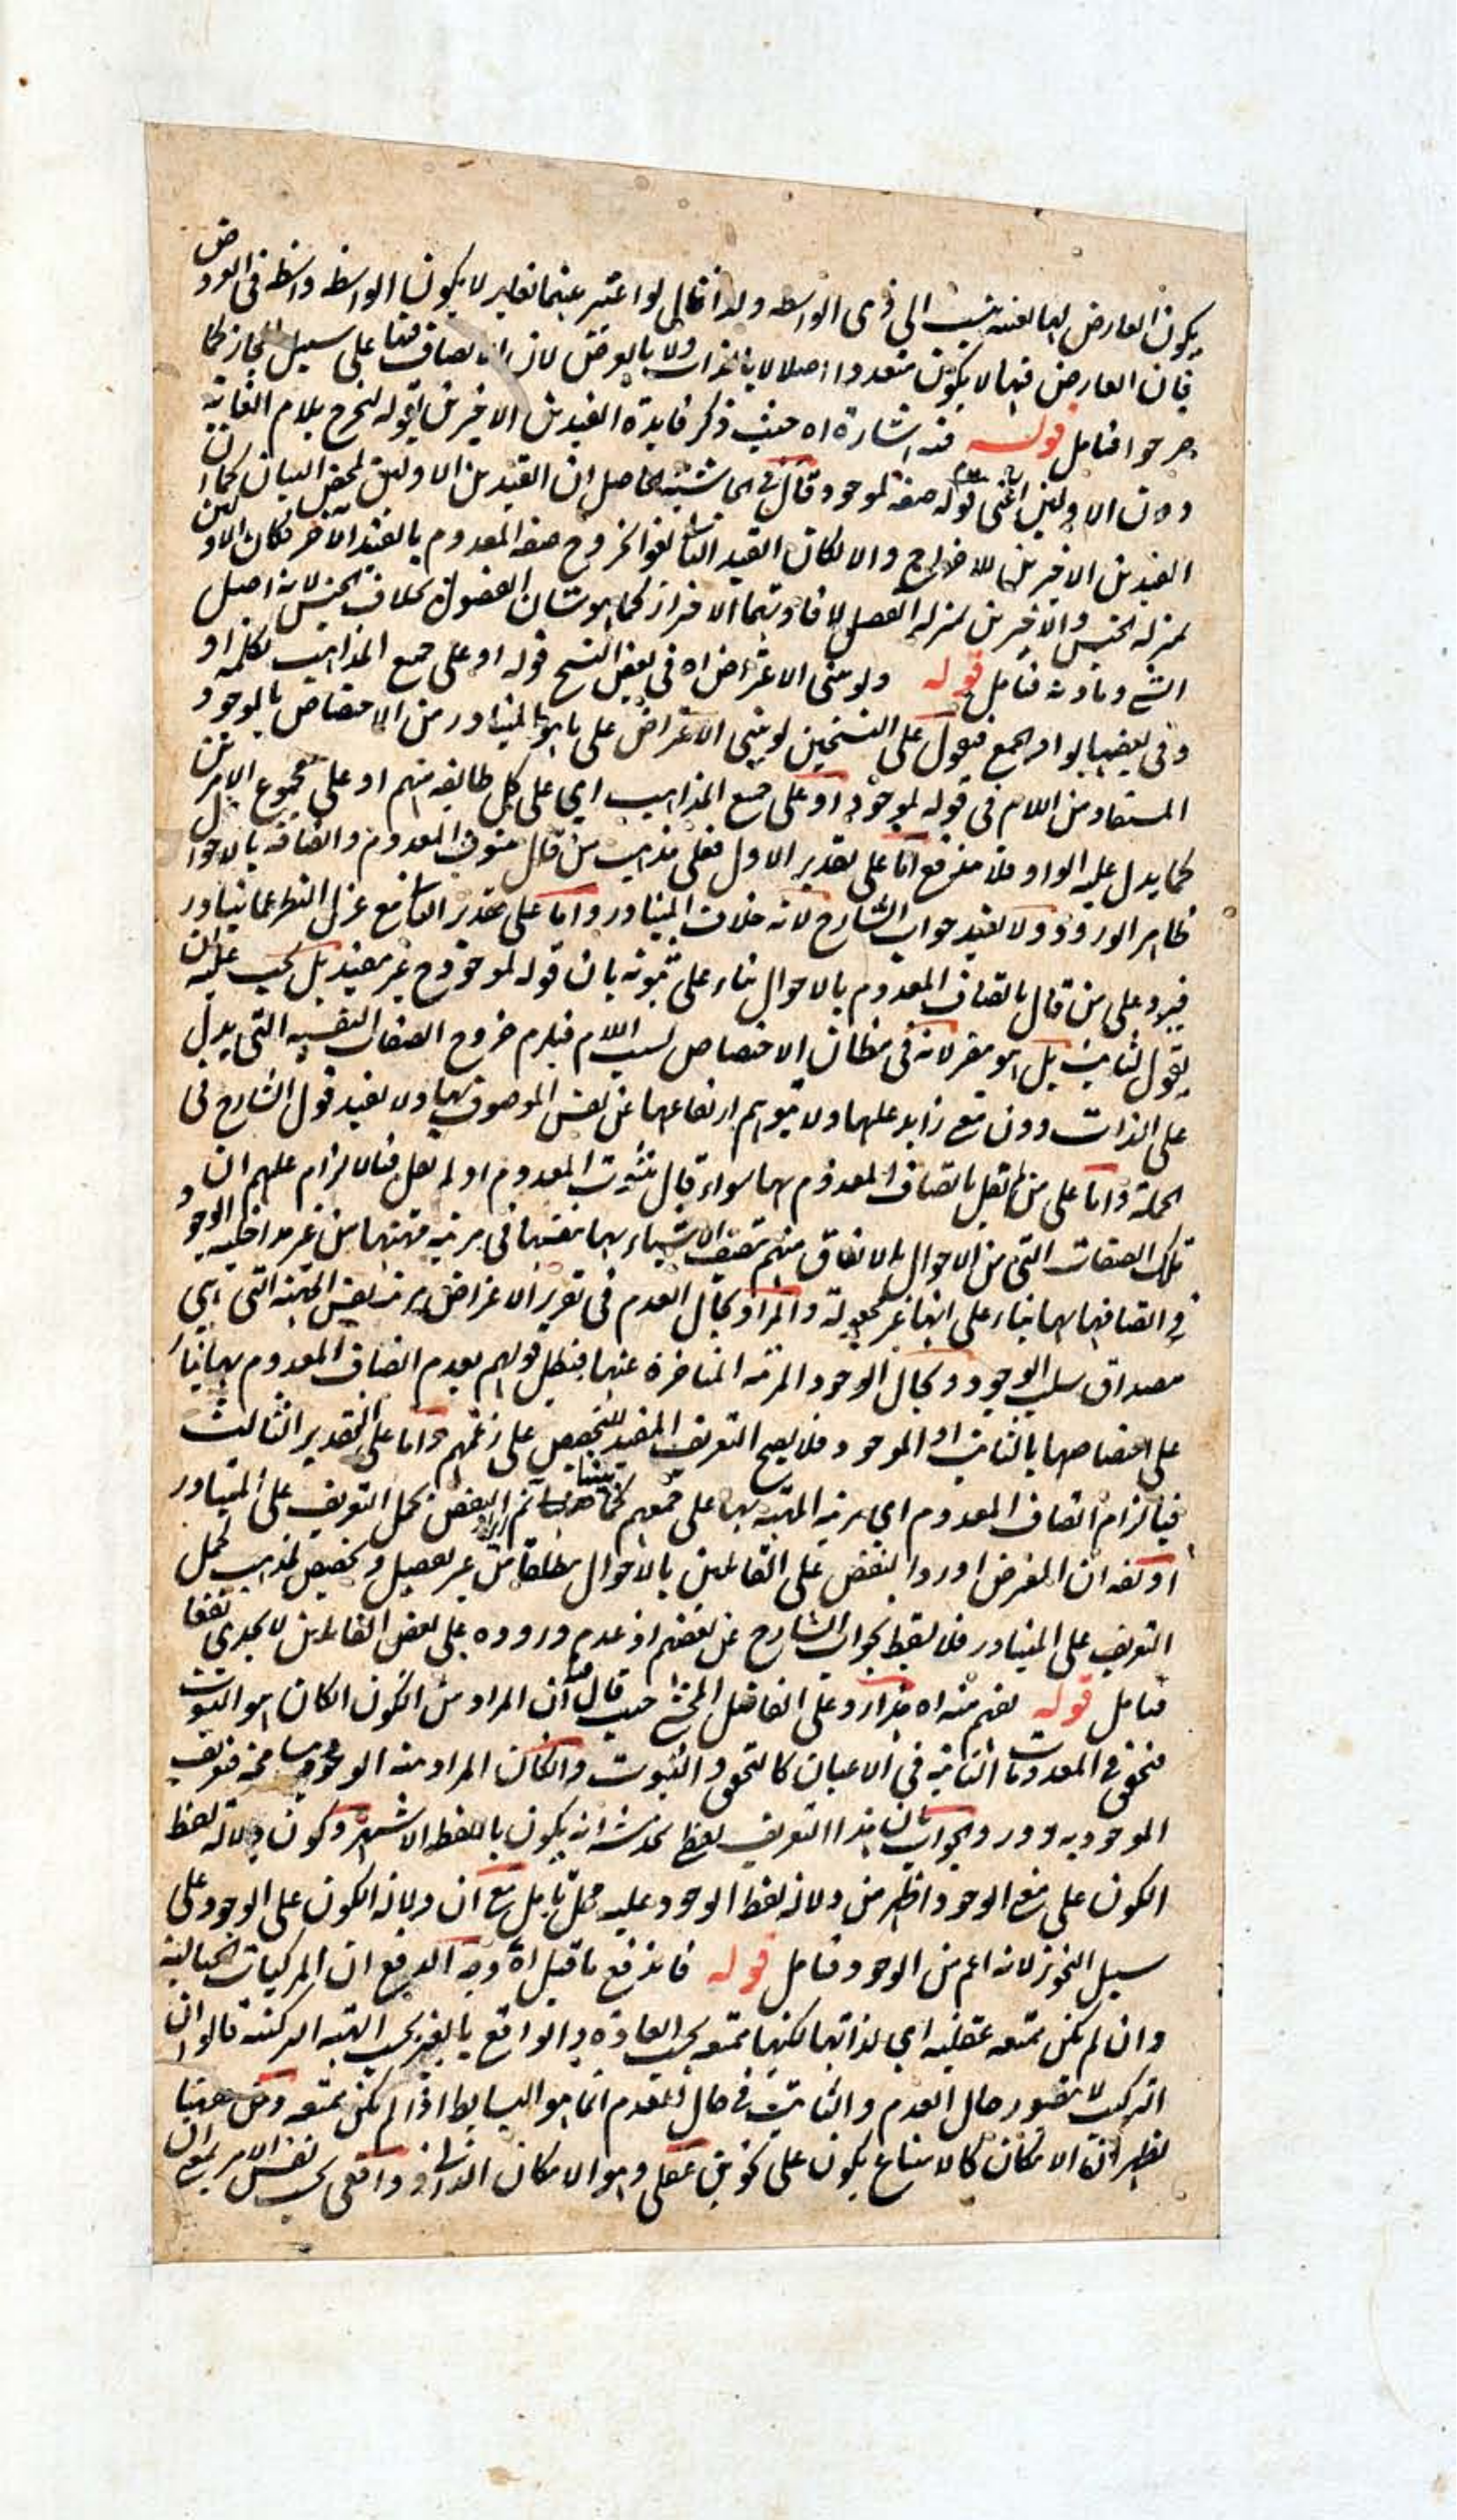 يكون العارض لهما بعينه ينسب الى ذى الواسطه ولذا قال لو اعتبر بينهما تغاير لا يكون الواسطه واسطه فى العروض
فان العارض فيهما لا يكون متعددا اصلا لا بالذات ولا بالعرض لان الاتصاف فيها على سبيل المجاز كما
صرحوا فتامل قوله فيه اشارة اه حيث ذكر فايدة القيدين الاخيرين بقوله ليخرج بلام الغاية
دون الاولين اعنى قوله صفة لموجود قال فى الحاشية الحاصل ان القيدين الاولين لمحض البيان كما ان
القيدين الاخيرين للاخراج والا لكان القيد الثانى لغوا لخروج صفة المعدوم بالقيد الآخر فكان الاولين
بمنزلة الجنس والاخيرين بمنزلة الفصل لافادتهما الافراز كما هو شان الفصول بخلاف الجنس لانه اصل
الشئ ومادته فتامل قوله ولو بنى الاعتراض اه فى بعض النسخ قوله او على جميع المذاهب بكلمة او
وفى بعضها بواو الجمع فنقول على النسختين لو بنى الاعتراض على ما هو المتبادر من الاختصاص بالموجود
المستفاد من اللام فى قوله لموجود او على جميع المذاهب اى على كل طايفة منهم او على مجموع الامرين
كما يدل عليه الواو فلا يندفع اما على تقدير الاول فعلى مذهب من قال بثبوت المعدوم واتصافه بالاحوال
ظاهر الورود ولا يفيد جواب الشارح لانه خلاف المتبادر واما على تقدير الثانى مع عزل النظر عما يتبادر
فيرد على من قال باتصاف المعدوم بالاحوال بناء على ثبوته بان قوله لموجود ح غير مفيد بل يجب عليه ان
يقول لثابت بل هو مضر لانه فى مظان الاختصاص لسبب اللام فيلزم خروج الصفات النفسيه التى يدل
على الذات دون معنى زايد عليها ولا يتوهم ارتفاعها عن نفس الموصوف بها ولا يفيد قول الشارح فى
الجملة واما على من لم يقل باتصاف المعدوم بها سواء قال بثبوت المعدوم او لم يقل فبالالزام عليهم ان
تلك الصفات التى من الاحوال بالاتفاق منهم تتصف الاشياء بها بنفسها فى مرتبة مهيتها من غير مداخلية الوجود
فى اتصافها بها بناء على انها غير مجعولة والمراد بحال العدم فى تقرير الاعتراض مرتبة نفس المهية التى هى
مصداق سلب الوجود وبحال الوجود المرتبة المتاخرة عنها فبطل قولهم بعدم اتصاف المعدوم بها بناء
على اختصاصها بالثابت او الموجود فلا يصح التعريف المفيد للتخصيص على زعمهم واما على التقدير الثالث
فبالزام اتصاف المعدوم اى مرتبة المهية بها على جميعهم كما بينا ثم ايراد النقض بحمل التعريف على المتبادر
او نقول ان المعترض اورد النقض على القائلين بالاحوال مطلقا من غير تفصيل وتخصيص لمذهب بحمل
التعريف على المتبادر فلا يسقط بجواب الشارح عن بعضهم اذ عدم وروده على بعض القائلين لا يجدى نفعا
فتامل قوله يفهم منه اه هذا رد على الفاضل المحشى حيث قال ان المراد من الكون ان كان هو الثبوت
فتحقق فى المعدومات الثابتة فى الاعيان كالتحقق والثبوت وان كان المراد منه الوجود فتعريف
الموجود به دور والجواب بان هذا التعريف لفظى يخدشه انه يكون باللفظ الاشهر وكون دلالة لفظ
الكون على معنى الوجود اظهر من دلالة لفظ الوجود عليه محل تامل مع ان دلالة الكون على الوجود على
سبيل التجوز لانه اعم من الوجود فتامل قوله فاندفع ما قيل اه وجه الدفع ان المركبات الخيالية
وان لم يكن ممتنعه عقليه اى لذاتها لكنها ممتنعه بحسب العادة والواقع بالغير بحسب الهيئة التركيبية قالوا ان
التركيب لا يتصور حال العدم والثابت فى حال العدم انما هو البسايط اذا لم يكن ممتنعه ومن ههنا
يظهر ان الامكان كالامتناع يكون على نحوين عقلى وهو الامكان الذاتى وواقعى بحسب نفس الامر بمعنى ان